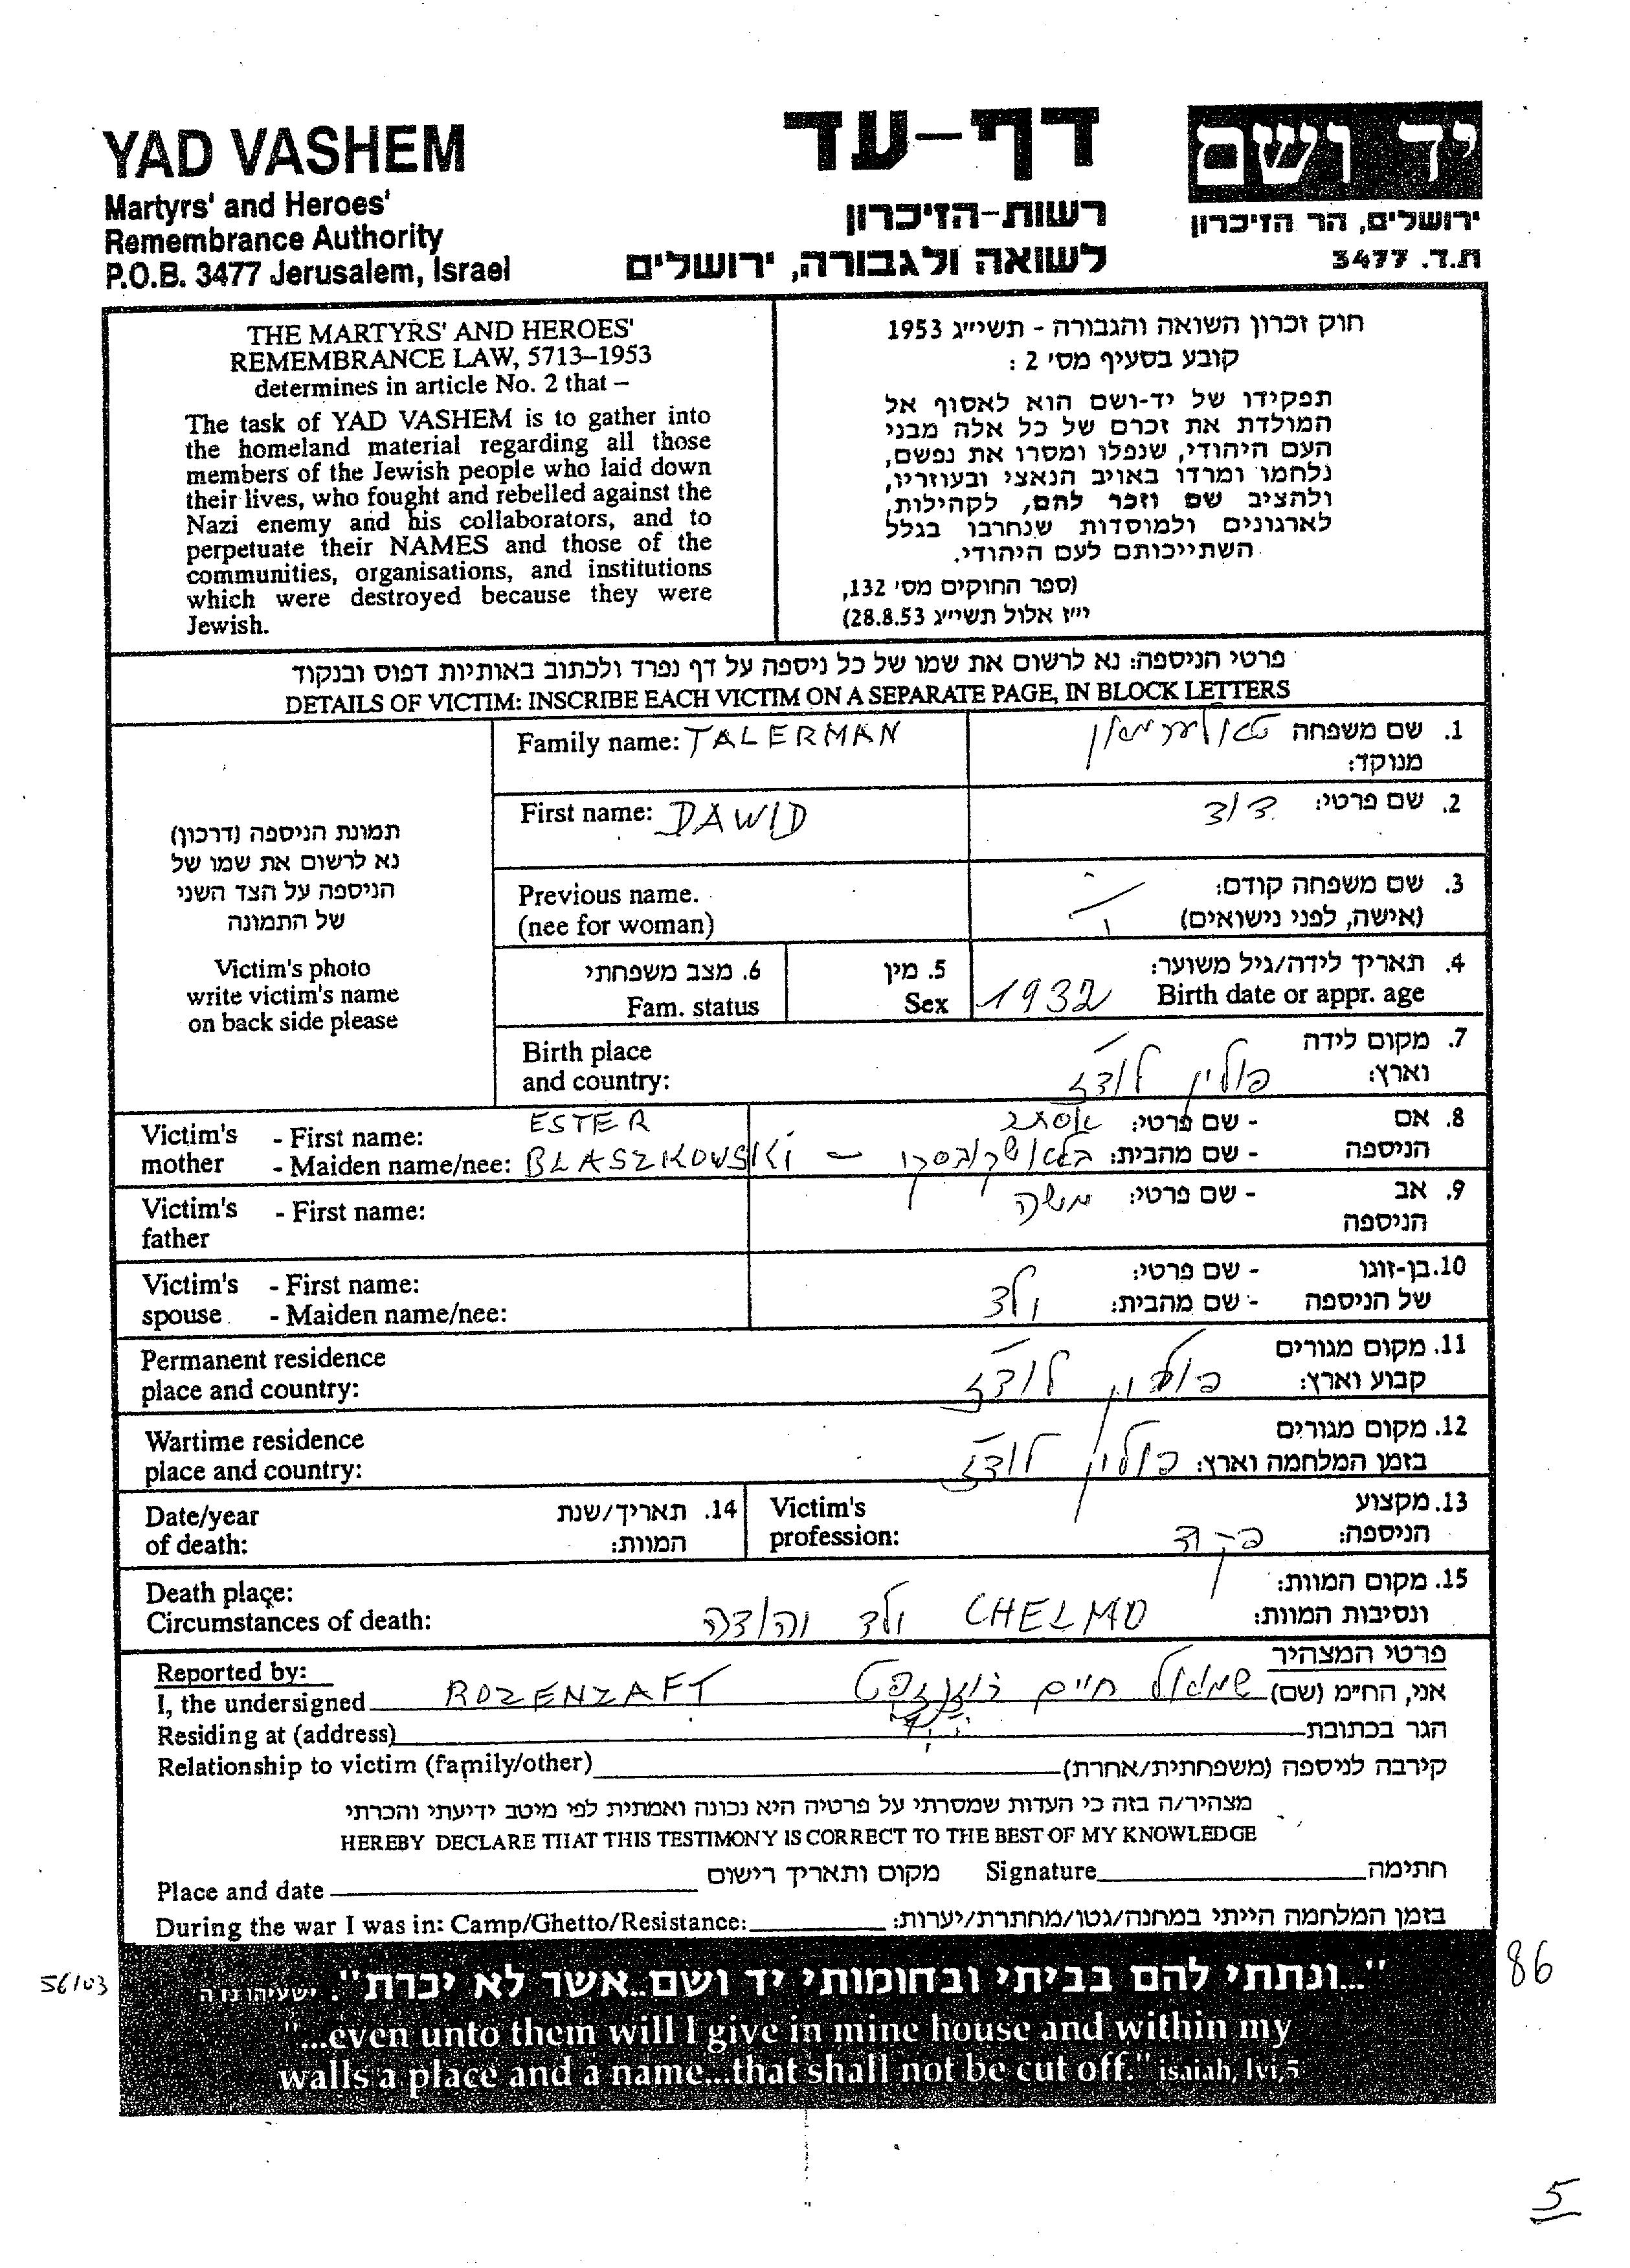 YAD VASHEM
Martyrs' and Heroes'
Remembrance Authority
P.O.B. 3477 Jerusalem, Israel
דף-עד
רשות-הזיכרון
לשואה ולגבורה, ירושלים
יד ושם
ירושלים, הר הזיכרון
ת.ד. 3477
THE MARTYRS' AND HEROES'
REMEMBRANCE LAW, 5713–1953
determines in article No. 2 that –
The task of YAD VASHEM is to gather into
the homeland material regarding all those
members of the Jewish people who laid down
their lives, who fought and rebelled against the
Nazi enemy and his collaborators, and to
perpetuate their NAMES and those of the
communities, organisations, and institutions
which were destroyed because they were
Jewish.
חוק זכרון השואה והגבורה - תשי״ג 1953
קובע בסעיף מס' 2 :
תפקידו של יד-ושם הוא לאסוף אל
המולדת את זכרם של כל אלה מבני
העם היהודי, שנפלו ומסרו את נפשם,
נלחמו ומרדו באויב הנאצי ובעוזריו,
ולהציב שם וזכר להם, לקהילות,
לארגונים ולמוסדות שנחרבו בגלל
השתייכותם לעם היהודי.
(ספר החוקים מס' 132,
י״ז אלול תשי״ג 28.8.53)
פרטי הניספה: נא לרשום את שמו של כל ניספה על דף נפרד ולכתוב באותיות דפוס ובנקוד
DETAILS OF VICTIM: INSCRIBE EACH VICTIM ON A SEPARATE PAGE, IN BLOCK LETTERS
תמונת הניספה (דרכון)
נא לרשום את שמו של
הניספה על הצד השני
של התמונה
Victim's photo
write victim's name
on back side please
Family name: TALERMAN
1. שם משפחה טאלערמאן
מנוקד:
First name: DAWID
2. שם פרטי: דוד
Previous name.
(nee for woman)
3. שם משפחה קודם:
(אישה, לפני נישואים)
6. מצב משפחתי
Fam. status
5. מין
Sex
4. תאריך לידה/גיל משוער:
Birth date or appr. age 1932
Birth place
and country:
7. מקום לידה
וארץ: פולין לודז
Victim's - First name: ESTER
mother - Maiden name/nee: BLASZKOWSKI –
8. אם - שם פרטי: אסתר
הניספה - שם מהבית: בלאשקובסקי
Victim's - First name:
father
9. אב - שם פרטי: משה
הניספה
Victim's - First name:
spouse - Maiden name/nee:
10. בן-זוגו - שם פרטי:
של הניספה - שם מהבית: ילד
Permanent residence
place and country:
11. מקום מגורים
קבוע וארץ: פולין לודז
Wartime residence
place and country:
12. מקום מגורים
בזמן המלחמה וארץ: פולין לודז
Date/year
of death:
14. תאריך/שנת
המוות:
Victim's
profession:
13. מקצוע
הניספה:
Death place:
Circumstances of death:
15. מקום המוות:
ונסיבות המוות: CHELMO ילד
Reported by:
פרטי המצהיר
I, the undersigned ROZENZAFT
אני, הח״מ (שם) שמואל חיים
Residing at (address)
הגר בכתובת
Relationship to victim (family/other)
קירבה לניספה (משפחתית/אחרת)
מצהיר/ה בזה כי העדות שמסרתי על פרטיה היא נכונה ואמתית לפי מיטב ידיעתי והכרתי
HEREBY DECLARE THAT THIS TESTIMONY IS CORRECT TO THE BEST OF MY KNOWLEDGE
Place and date
מקום ותאריך רישום
Signature
חתימה
During the war I was in: Camp/Ghetto/Resistance:
בזמן המלחמה הייתי במחנה/גטו/מחתרת/יערות:
"...ונתתי להם בביתי ובחומותי יד ושם..אשר לא יכרת". ישעיהו נו ה
"...even unto them will I give in mine house and within my
walls a place and a name...that shall not be cut off." isaiah, lvi,5
56/03
86
5